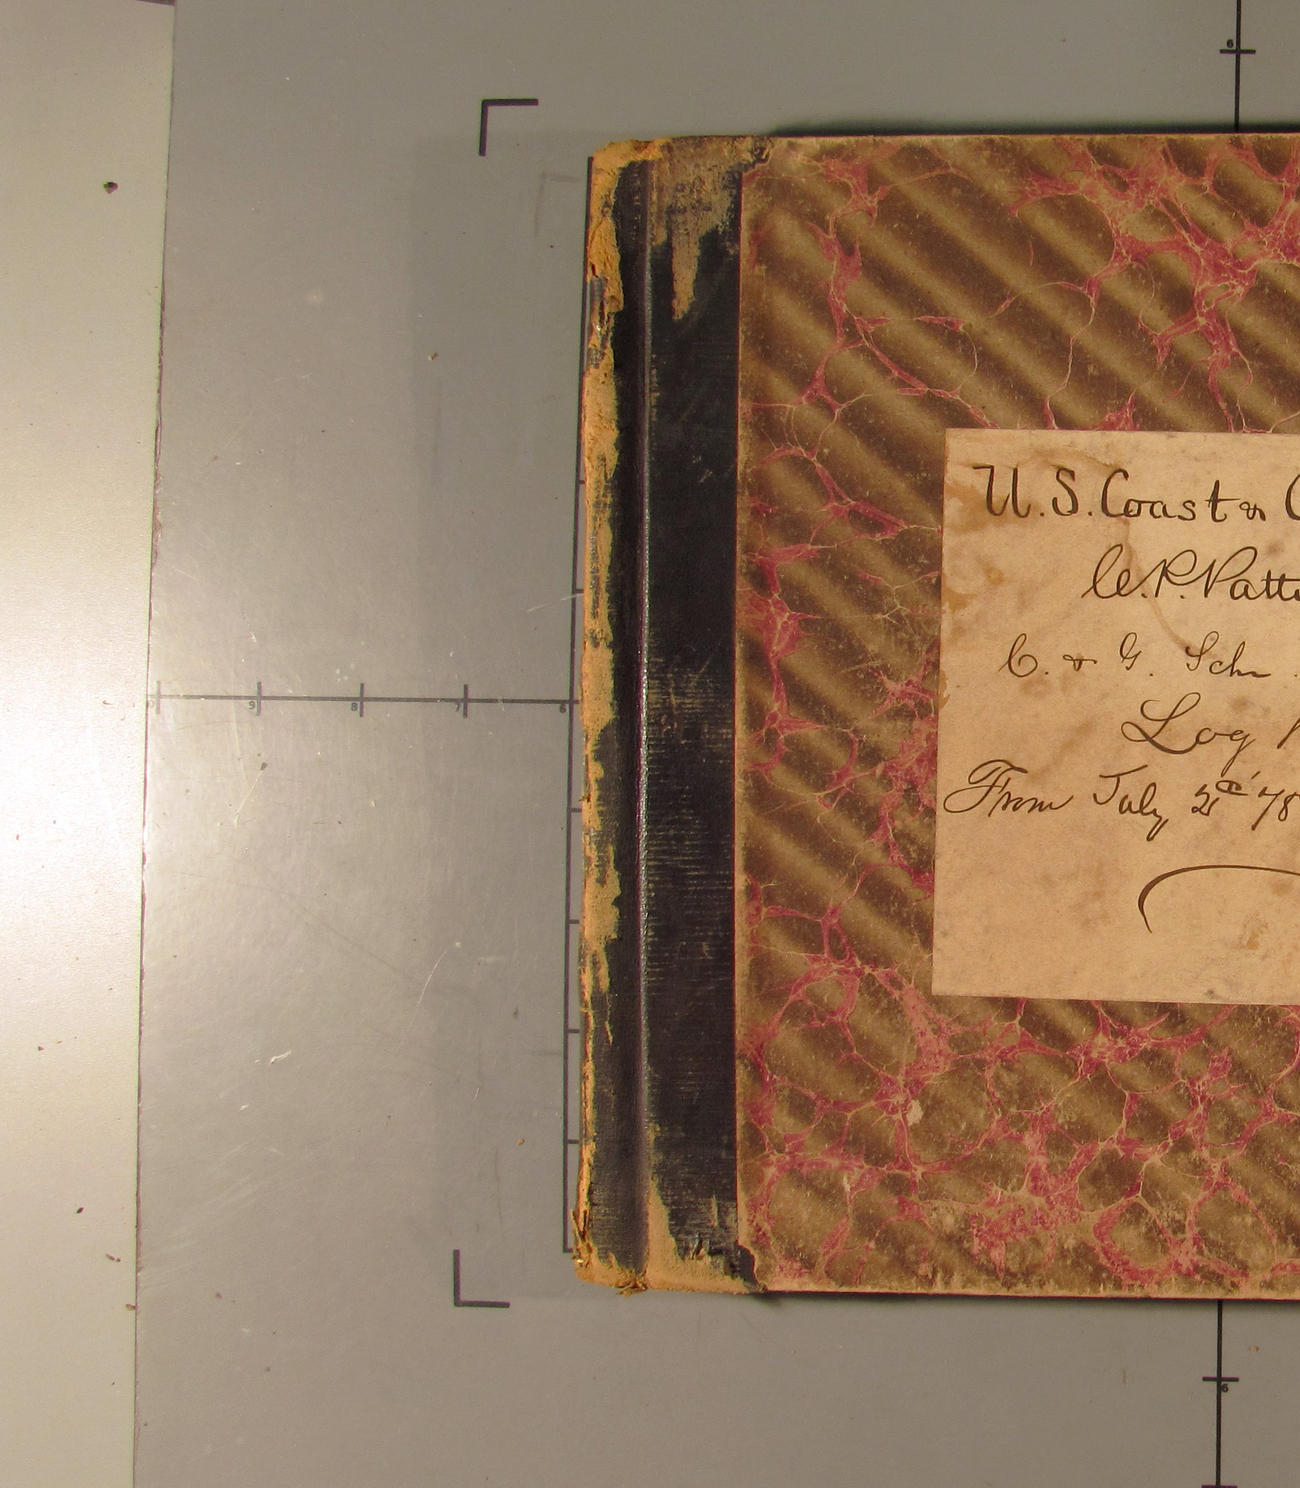 6
U.S. Coast &
C.P. Patt
C. & G. Schr
Log
From July 2d '78
9
8
7
6
6